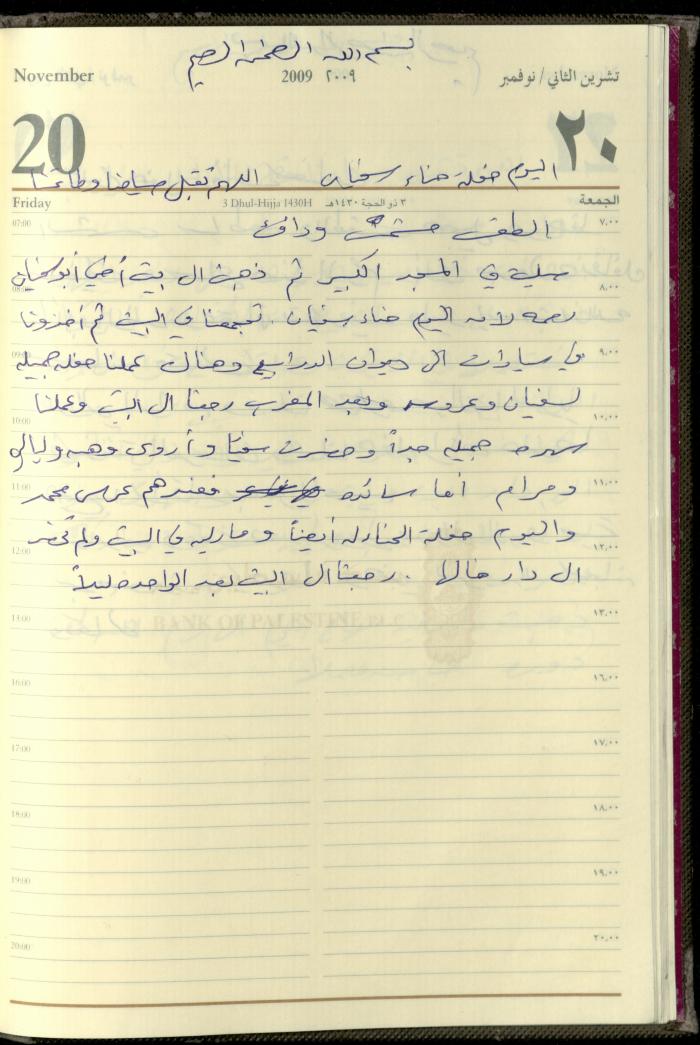 بسم الله الرحمن الرحيم
November 2009 ٢٠٠٩ تشرين الثاني / نوفمبر
20 ٢٠
اليوم حفلة حناء سفيان اللهم تقبل صيامنا وطاعتنا
Friday 3 Dhul-Hijja 1430H ٣ ذو الحجة ١٤٣٠هـ الجمعة
07:00 ٧,٠٠
الطقس مشمس ودافئ
صليت في المسجد الكبير ثم ذهبت الى بيت أخي أبو سفيان
08:00 ٨,٠٠
رحمه لانه اليوم حناء سفيان. تجمعنا في البيت ثم أخذونا
09:00 ٩,٠٠
في سيارات الى ديوان الدراويع وهناك عملنا حفله جميله
لسفيان وعروسه وبعد المغرب رجعنا الى البيت وعملنا
10:00 ١٠,٠٠
سهره جميله جداً وحضرت سفيتا وأروى وهبه وليالي
11:00 ١١,٠٠
ومرام أما سائده فعندهم عرس محمد
واليوم حفلة الحناء له أيضاً وماريه في البيت ولم تحضر
12:00 ١٢,٠٠
الى دار خالها. رجعنا الى البيت بعد الواحده ليلاً
13:00 ١٣,٠٠
BANK OF PALESTINE
16:00 ١٦,٠٠
17:00 ١٧,٠٠
18:00 ١٨,٠٠
19:00 ١٩,٠٠
20:00 ٢٠,٠٠